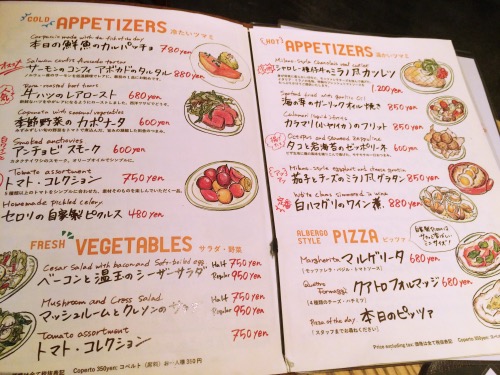 COLD APPETIZERS 冷たいツマミ
Carpaccio made with the fish of today
本日の鮮魚のカルパッチョ 780yen
Salmon confit Avocado tartar
サーモンのコンフィ アボカドのタルタル 880yen
Tuna roasted beef heart
牛ハツのレアロースト 680yen
Caponata with seasonal vegetables
季節野菜のカポナータ 600yen
Smoked anchovies
アンチョビスモーク 600yen
カタクチイワシのスモーク、オリーブオイルでシンプルに。
Tomato assortment
トマト・コレクション 750yen
Homemade pickled celery
セロリの自家製ピクルス 480yen
FRESH VEGETABLES サラダ・野菜
Cesar Salad with bacon and Soft-boiled egg
ベーコンと温玉のシーザーサラダ
Half 750yen
Regular 950yen
Mushroom and Cress Salad
マッシュルームとクレソンの
Half 750yen
Regular 950yen
Tomato assortment
トマト・コレクション 750yen
Coperto 350yen: コペルト(席料) お一人様 350円
HOT APPETIZERS 温かいツマミ
シャロレー種仔牛のミラノ風カツレツ
1,200yen
海の幸のガーリックオイル焼き 850yen
カラマリ(ヤリイカ)のフリット 850yen
Octopus and seaweed Zeppoline
タコと岩海苔のゼッポリーネ 600yen
Milano-style eggplant and cheese gratin
茄子とチーズのミラノ風グラタン 850yen
White clams simmered in wine
白ハマグリのワイン蒸し 880yen
ALBERGO STYLE PIZZA ピッツァ
Margherita マルゲリータ
(モッツァレラ・バジル・トマトソース) 680yen
Quattro Formaggi クアトロフォルマッジ
(4種類のチーズ・ハチミツ) 680yen
Pizza of the day 本日のピッツァ
(スタッフまでお尋ねください)
Price excluding tax: 価格は全て税抜表記 Coperto 350yen: コペ